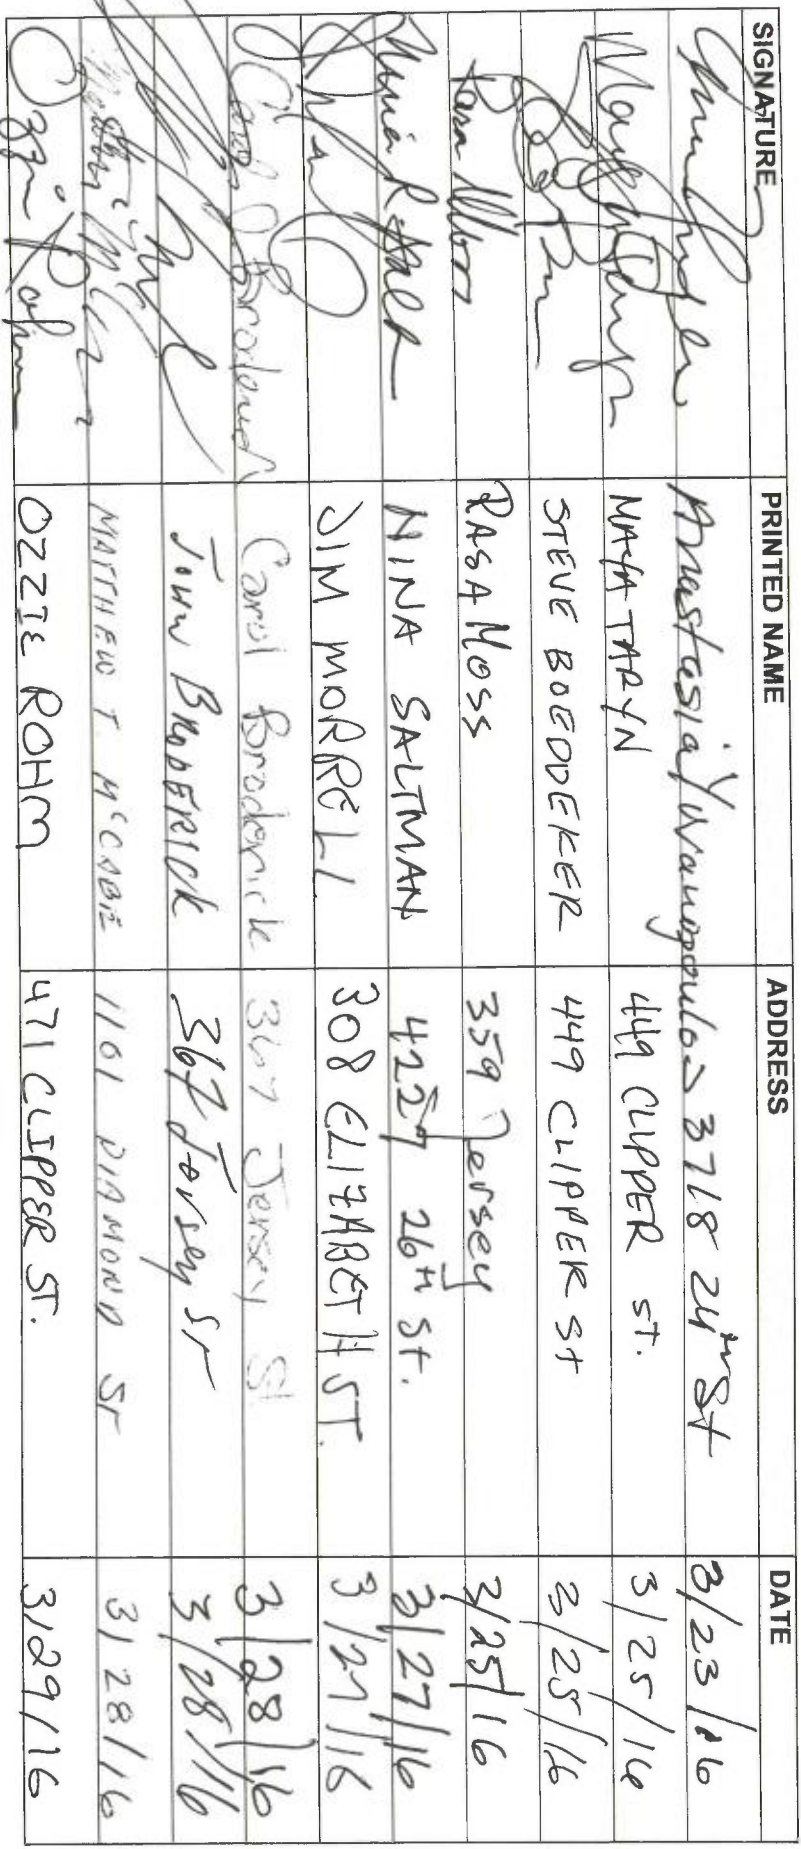 SIGNATURE PRINTED NAME ADDRESS DATE
Anastasia Yovanopoulos 3718 24th St 3/23/16
MAYA TARYN 449 CLIPPER ST. 3/25/16
STEVE BOEDDEKER 449 CLIPPER St 3/25/16
Rasa Moss RASA MOSS 359 Jersey 3/25/16
NINA SALTMAN 4227 26TH St. 3/27/16
JIM MORRELL 308 ELIZABETH ST. 3/27/16
Carol Broderick Carol Broderick 367 Jersey St 3/28/16
JOHN BRODERICK 367 Jersey St 3/28/16
MATTHEW T. McCABE 1101 DIAMOND ST 3/28/16
Ozzie Rohm OZZIE ROHM 471 CLIPPER ST. 3/29/16